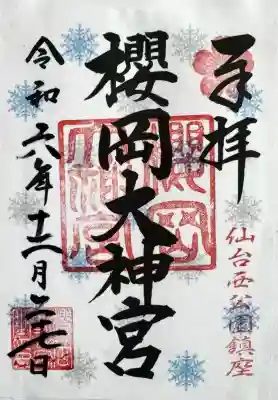 奉拝
仙台西公園鎮座
櫻岡大神宮
櫻岡
大神宮
令和六年十二月二七日